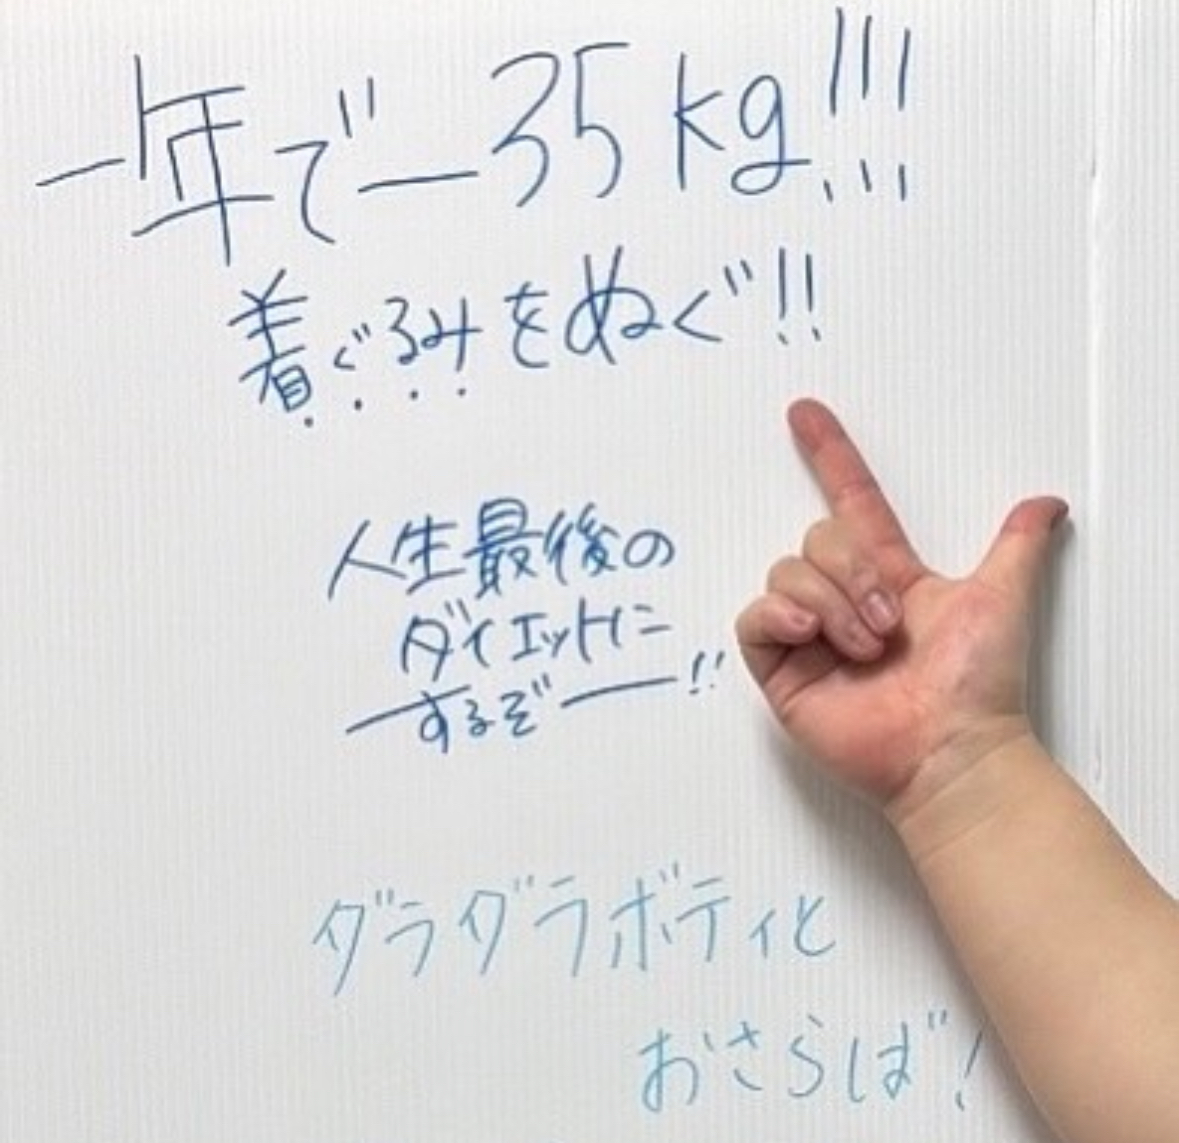 一年で−35kg!!!
着ぐるみをぬぐ!!
人生最後の
ダイエットに
するぞー!!
ダラダラボディと
おさらば!